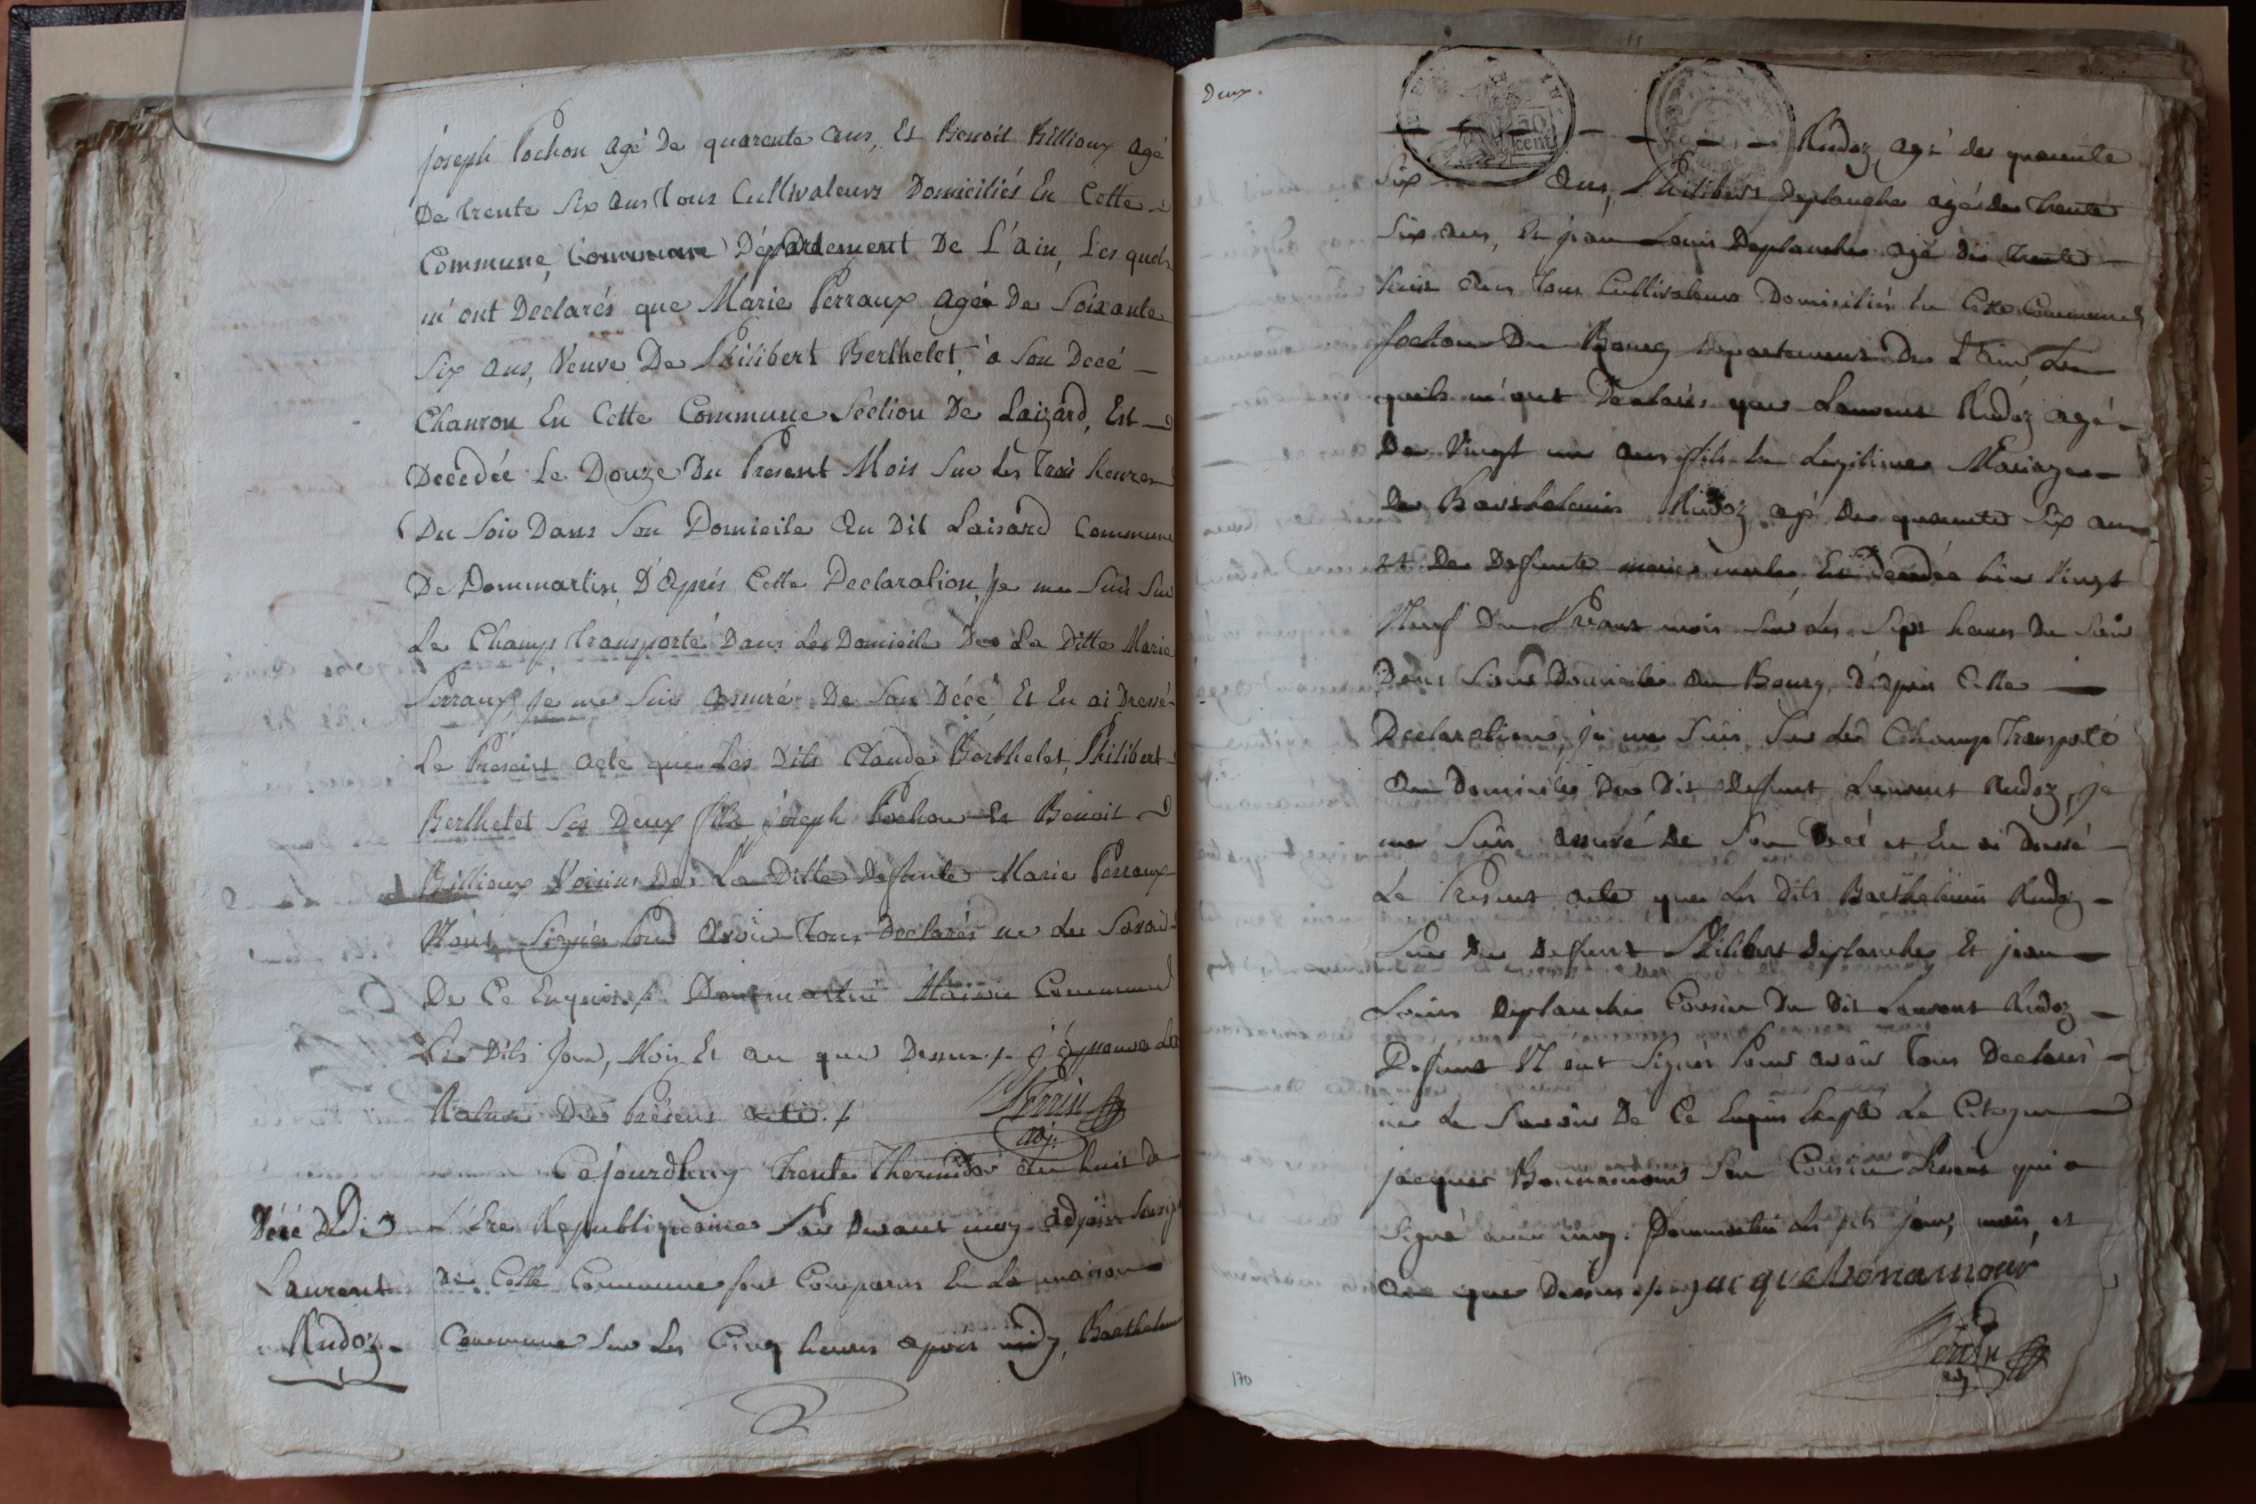 Joseph Pochon agé De quarente ans, Et Benoit Billioux agé
De trente Six ans tous Cultivateurs Domiciliés En Cette
Commune, Département De L'ain, Les quels
m'ont Declarés que Marie Perraux agée De Soixante
Six ans, Veuve De Philibert Berthelet, à Son Decé
Chanron En Cette Commune Section De Laizard, Est
Decedée Le Douze Du Present Mois Sur Les Trois heures
Du Soir Dans Son Domicile Au Dit Laisard Commune
De Dommartin, D'Après Cette Declaration, Je me Suis Sur
Le Champ Transporté Dans Le Domicile De La Ditte Marie
Perraux, Je me Suis assuré De Son Décé Et En ai Dressé
Le Présent acte que Les Dits Claude Berthelet, Philibert
Berthelet Ses Deux fils, joseph Pochon Et Benoit
Billioux Voisins De La Ditte Defunte Marie Perraux
N'ont Signés Pour avoir Tous Declarés ne Le Savoir
De Ce Enquis ./. Dommartin Mairie Commune
Les Dits Jour, Mois Et an que Dessus ./. j'approuve La
Rature Du présent acte ./.
Perrin
adj.
Cejourdhuy Trente Thermidor An huit de
Décé De
L'Ere Republiquaine Par Devant moy adjoint Soussigné
Laurent
De Cette Commune sont Comparus En La maison
Rudoz
Commune Sur Les Cinq heures après midy, Barthelemi
Deux.
50
cent
Rudoz, agé de quarente
Six ans, Philibert Deplanche agé de Trente
Six ans, Et jean Louis Deplanche agé de Trente
ans tous Cultivateurs Domiciliés En Cette Commune
Section Du Bourg Departement De L'ain Les
quels m'ont Declarés que Laurent Rudoz agé
De Vingt un ans fils En Legitime Mariage
de Barthelemis Rudoz agé De quarente Six ans
et De Defunte marie Est Decedée hier Vingt
Neuf Du Present mois Sur Les Sept heures Du Soir
Dans Son Domicile Au Bourg, D'après Cette
Declaration je me Suis Sur Le Champ Transporté
Au Domicile Du Dit Defunt Laurent Rudoz, je
me Suis assuré De Son Decé et En ai Dressé
Le Présent acte que Les Dits Barthelemis Rudoz
Père Du Defunt Philibert Deplanche Et jean
Louis Deplanche Cousin Du Dit Laurent Rudoz
Defunt N'ont Signés Pour avoir Tous Declarés
ne Le Savoir De Ce Enquis Excepté Le Citoyen
jacques Bonnamour Son Cousin Present qui a
Signé avec moy. Dommartin Les dits jour, mois, et
an que Dessus ./. jacque bonamour
Perrin
adj
170